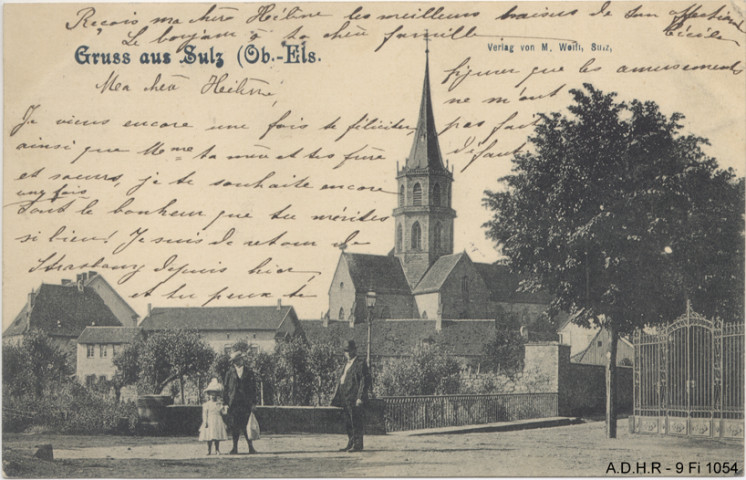 Reçois ma chère Hélène les meilleurs baisers de ton affectionnée
Le bonjour à ta chère famille
Cécile
Gruss aus Sulz (Ob.-Els.
Verlag von M. Weill, Sulz,
Ma chère Hélène
Je viens encore une fois te féliciter
ainsi que Mme ta mère et tes frères
et soeurs, je te souhaite encore
une fois
tout le bonheur que tu mérites
si bien! Je suis de retour de
Strasbourg depuis hier
et tu peux te
figurer que les amusements
ne m'ont
pas fait
défaut
A.D.H.R - 9 Fi 1054